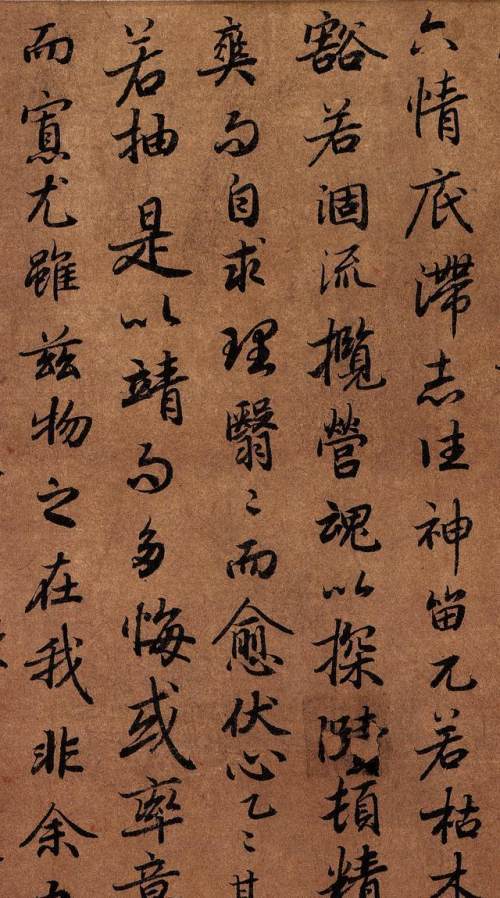 六情底滯志往神留兀若枯木
豁若涸流攬營魂以探頓精
爽而自求理翳〻而愈伏心乙〻其
若抽是以靖而多悔或率意
而寡尤雖茲物之在我非余